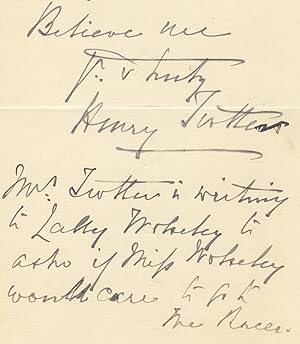 Believe me
Yrs v truly
Henry Trotter
Mrs. Trotter is writing
to Lady Wolseley to
ask if Miss Wolseley
would care to go to
the Races.